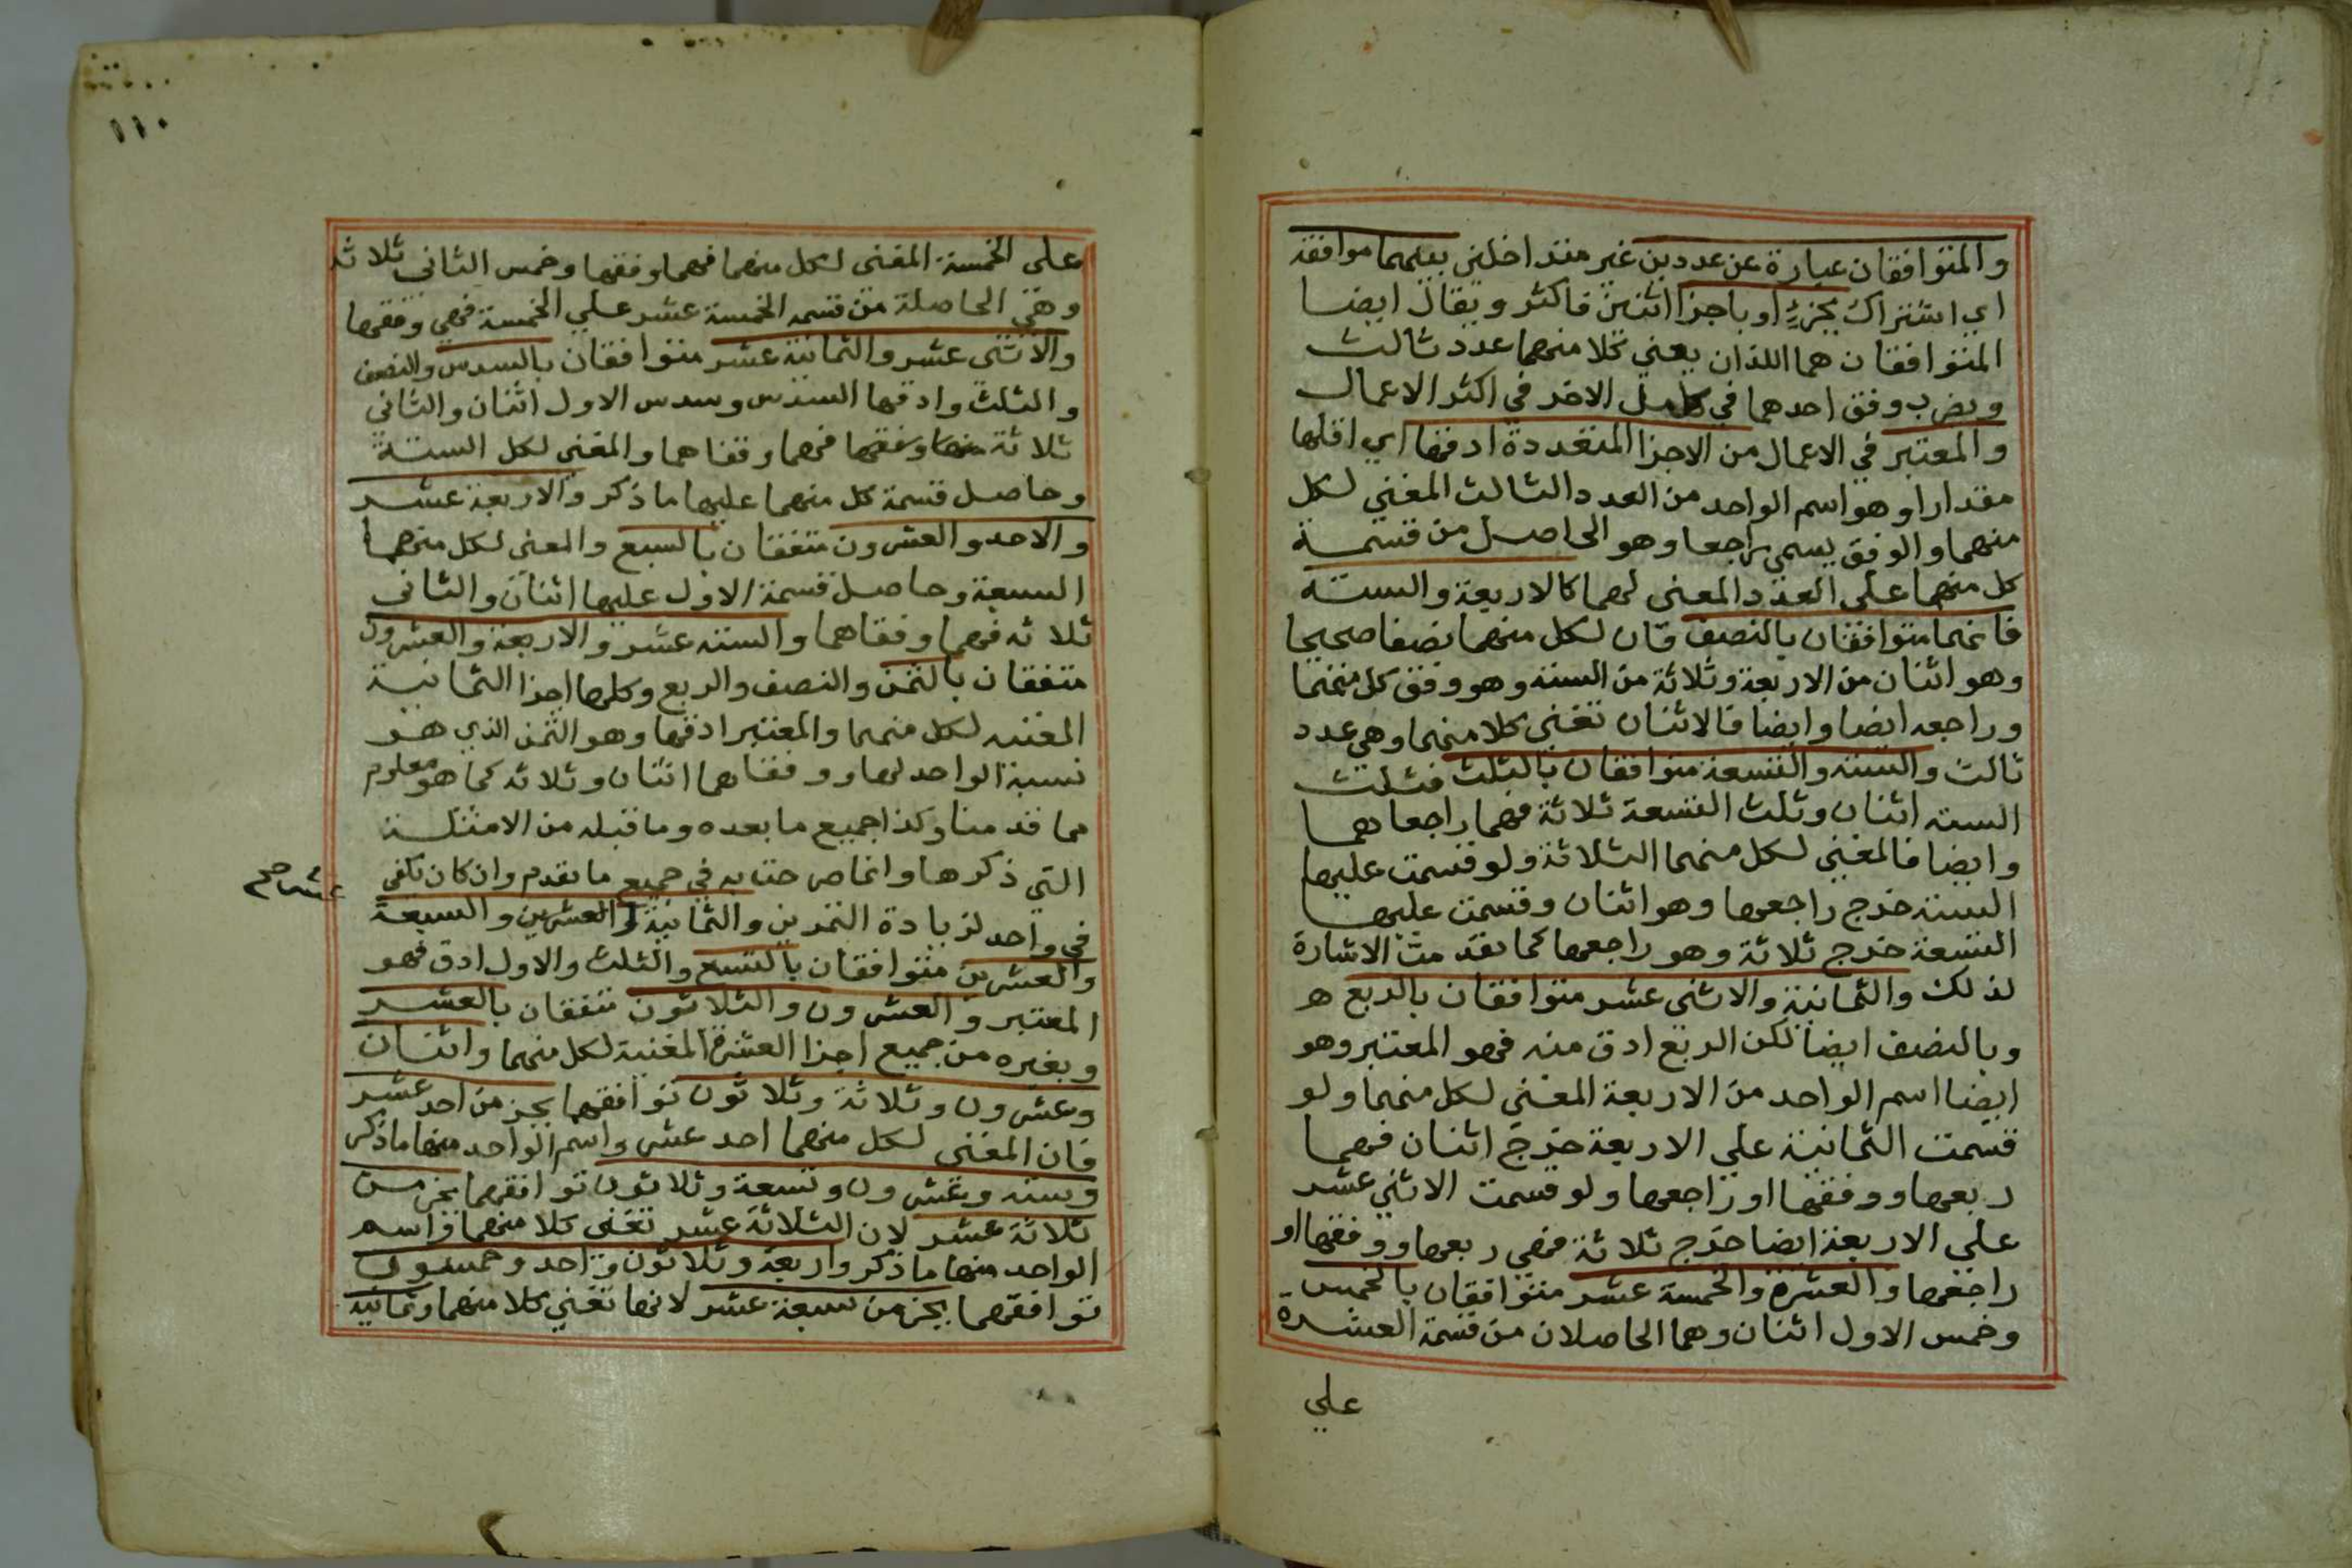 والمتوافقان عبارة عن عددين غير متداخلين بينهما موافقة
اي اشتراك بجزء او باجزا اثنين فاكثر ويقال ايضا
المتوافقان هما اللذان يفني كلا منهما عدد ثالث
ويضرب وفق احدهما في كامل الاخر في اكثر الاعمال
والمعتبر في الاعمال من الاجزا المتعددة ادقها اي اقلها
مقدارا وهو اسم الواحد من العدد الثالث المفني لكل
منهما والوفق يسمى راجعا وهو الحاصل من قسمة
كل منهما على العدد المفنى لهما كالاربعة والستة
فانهما متوافقان بالنصف فان لكل منهما نصفا صحيحا
وهو اثنان من الاربعة وثلاثة من الستة وهو وفق كل منهما
وراجعه ايضا وايضا فالاثنان تفني كلا منهما وهي عدد
ثالث والستة والتسعة متوافقان بالثلث فثلث
الستة اثنان وثلث التسعة ثلاثة فهما راجعاهما
وايضا فالمفني لكل منهما الثلاثة ولو قسمت عليها
الستة خرج راجعها وهو اثنان وقسمت عليها
التسعة خرج ثلاثة وهو راجعها كما تقدمت الاشارة
لذلك والثمانية والاثنى عشر متوافقان بالربع
وبالنصف ايضا لكن الربع ادق منه فهو المعتبر وهو
ايضا اسم الواحد من الاربعة المفني لكل منهما ولو
قسمت الثمانية علي الاربعة خرج اثنان فهما
ربعها ووفقها او راجعها ولو قسمت الاثني عشر
علي الاربعة ايضا خرج ثلاثة فهي ربعها ووفقها او
راجعها والعشرة والخمسة عشر متوافقان بالخمس
وخمس الاول اثنان وهما الحاصلان من قسمة العشرة
علي
١١٠
على الخمسة المفنى لكل منهما فهما وفقها وخمس الثاني ثلاثة
وهي الحاصلة من قسمة الخمسة عشر علي الخمسة فهي وفقها
والاثنى عشر والثمانية عشر متوافقان بالسدس والنصف
والثلث وادقها السدس وسدس الاول اثنان والثاني
ثلاثة فهما وفقاهما والمفنى لكل الستة
وحاصل قسمة كل منهما عليها ما ذكر والاربعة عشر
والاحد والعشرون متفقان بالسبع والمفني لكل منهما
السبعة وحاصل قسمة الاول عليها اثنان والثاني
ثلاثه فهما وفقاهما والسته عشر والاربعة والعشرون
متفقان بالثمن والنصف والربع وكلها اجزا الثمانية
المفنيه لكل منهما والمعتبر ادقها وهو الثمن الذي هو
نسبة الواحد لها ووفقاهما اثنان وثلاثه كما هو معلوم
مما قدمنا وكذا جميع ما بعده وما قبله من الامثلة
التي ذكرها وانما صرحنا به في جميع ما تقدم وان كان تكفي
في واحد لزيادة التمرين والثمانية والعشرين والسبعة
والعشرين متوافقان بالتسع والثلث والاول ادق فهو
المعتبر والعشرون والثلاثون متفقان بالعشر
وبغيره من جميع اجزا العشرة المفنية لكل منهما واثنان
وعشرون وثلاثة وثلاثون توافقهما بجز من احد عشر
فان المفنى لكل منهما احد عشر واسم الواحد منها ما ذكر
وسته وعشرون وتسعة وثلاثون توافقهما بجز من
ثلاثة عشر لان الثلاثة عشر تفنى كلا منهما واسم
الواحد منها ما ذكر واربعة وثلاثون وواحد وخمسون
توافقهما بجز من سبعة عشر لانها تفني كلا منهما وثمانية